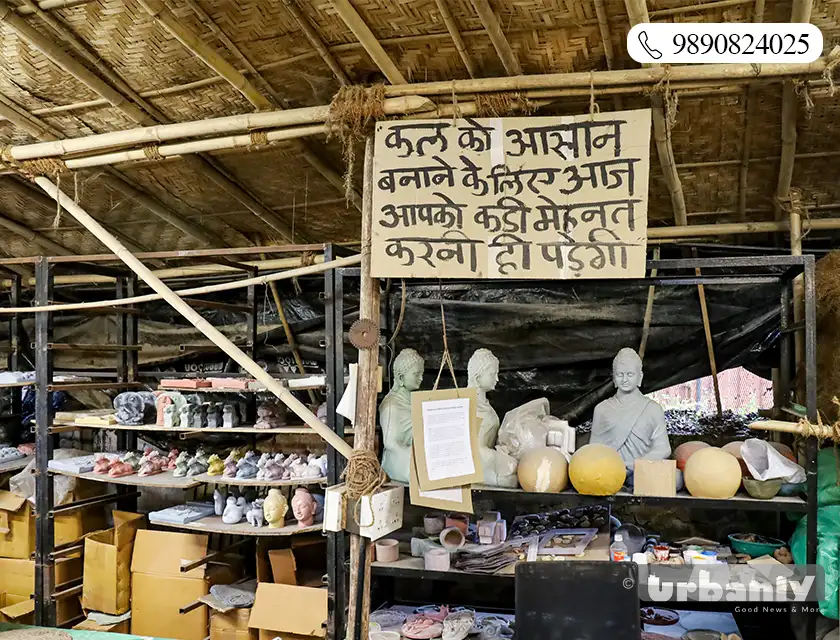 9890824025
कल को आसान
बनाने के लिए आज
आपको कडी मेहनत
करनी ही पड़ेगी
© urbaniv
Good News & More